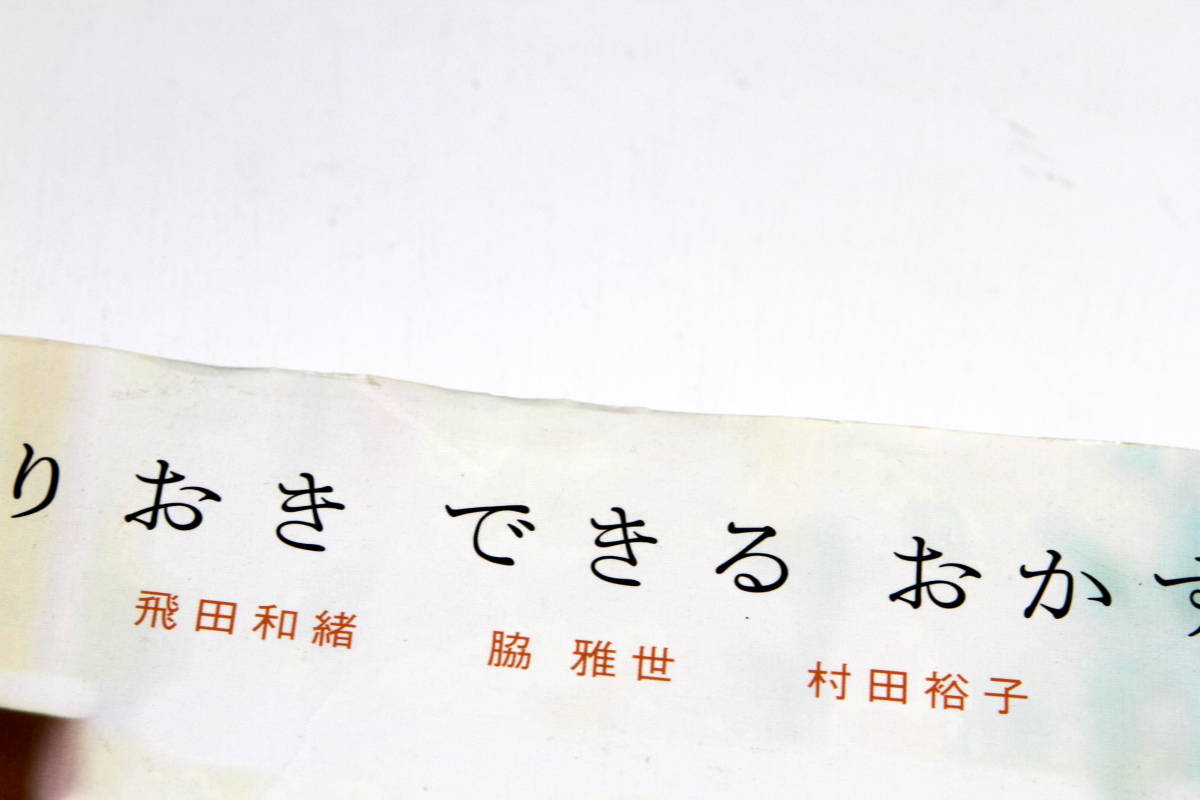 りおき できる おかず
飛田和緒 脇 雅世 村田裕子